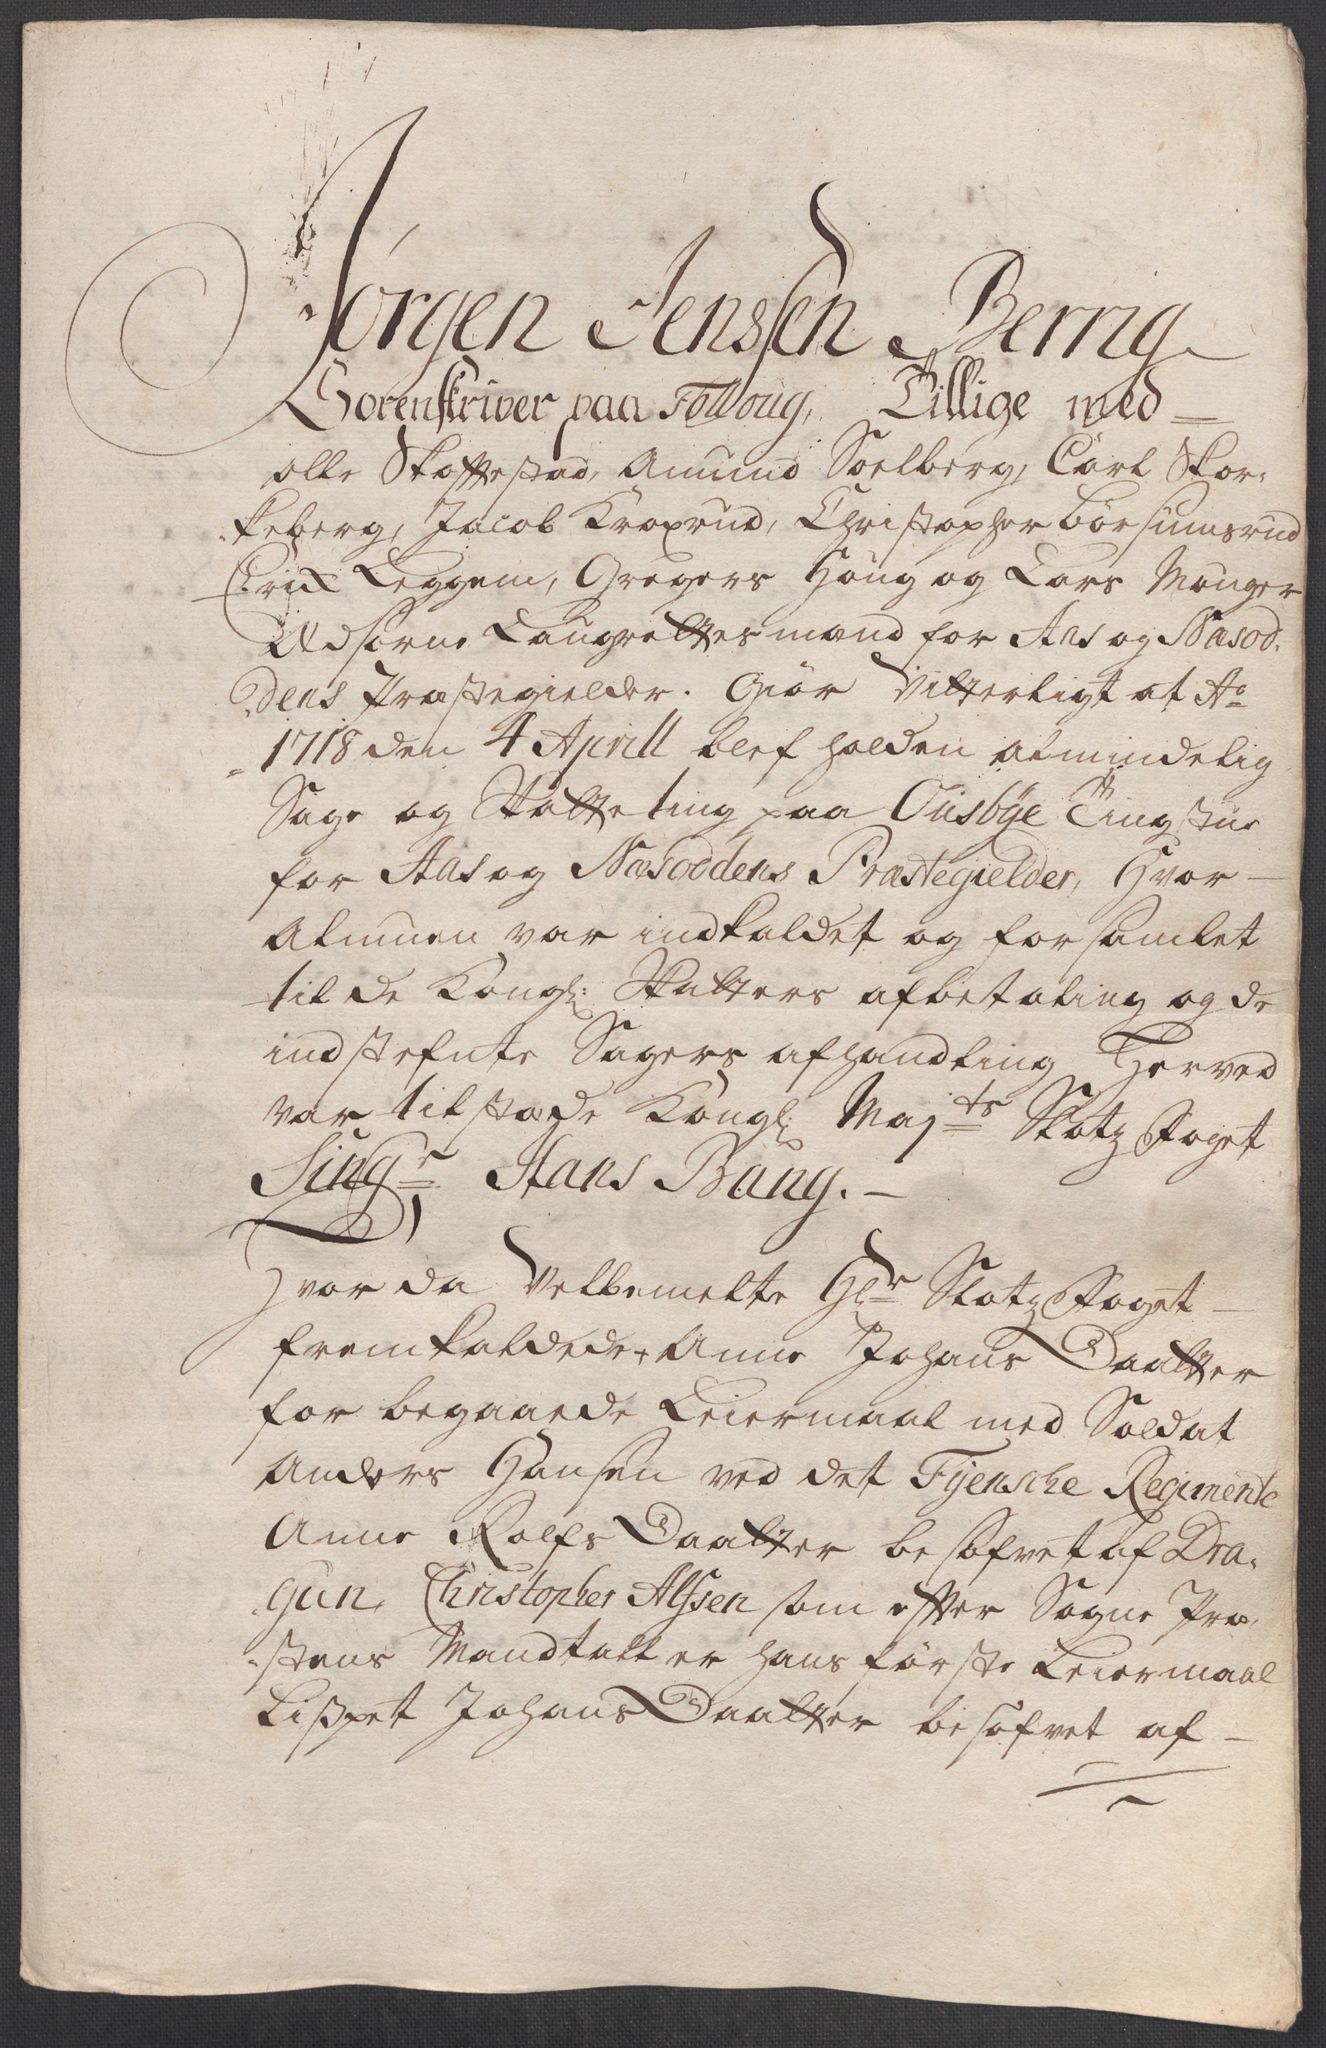 Jörgen Jenssen Berrig
Sorenskriver paa Folloug, Tillige med
olle Skaftestad, Amund Soelberg, Carl Skor-
keberg, Jacob Kroxrud, Christopher Börsumsrud
Erik Leggem, Gregers Houg og Lars Monger
Edsorne Laugrettesmænd for Aas og Næsod-
dens Præstegielder. Giör Vitterligt at Ao
1718 den 4 Aprill blef holden almindelig
Sage og Skatteting paa Ousbÿe Tingstue
for Aas og Næsoddens Præstegielder, Hvor
Almuen var indkaldet og forsamlet
til de Kongl: Skatters afbetaling og de
indstefnte Sagers afhandling Herved
var tilstæde Kongl: Majts Slotz Foget
Singr Hans Bang.
Hvor da Velbemelte Hr Slotz Foget
fremkaldede Anne Johans Daatter
for begaaede Leiermaal med Soldat
Anders Hansen ved det Fÿensche Regimente
Anne Rolfs Daatter besofvet af Dra-
gun, Christopher Alfsen som efter Sogne Præ-
stens Mandtall er hans förste Leiermaal
Lisbet Johans Daatter besofvet af